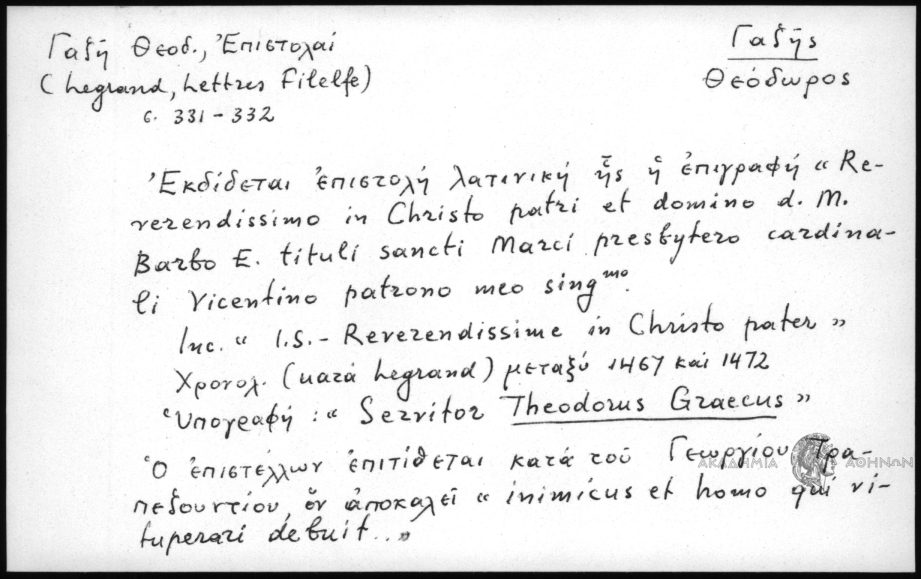 Γαζῆ Θεοδ., Ἐπιστολαί
(Legrand, Lettres Filelfe)
σ. 331-332
Γαζῆς
Θεόδωρος
Ἐκδίδεται ἐπιστολή λατινική ἧς ἡ ἐπιγραφή « Re-
verendissimo in Christo patri et domino d. M.
Barbo E. tituli sancti Marci presbytero cardina-
li Vicentino patrono meo sing^mo.
Inc. « I.S. - Reverendissime in Christo pater »
Χρονολ. (κατά Legrand) μεταξύ 1467 καί 1472
Ὑπογραφή : « Servitor Theodorus Graecus »
Ὁ ἐπιστέλλων ἐπιτίθεται κατά τοῦ Γεωργίου Τρα-
πεζουντίου, ὅν ἀποκαλεῖ « inimicus et homo qui vi-
tuperari debuit... »
ΑΚΑΔΗΜΙΑ ΑΘΗΝΩΝ